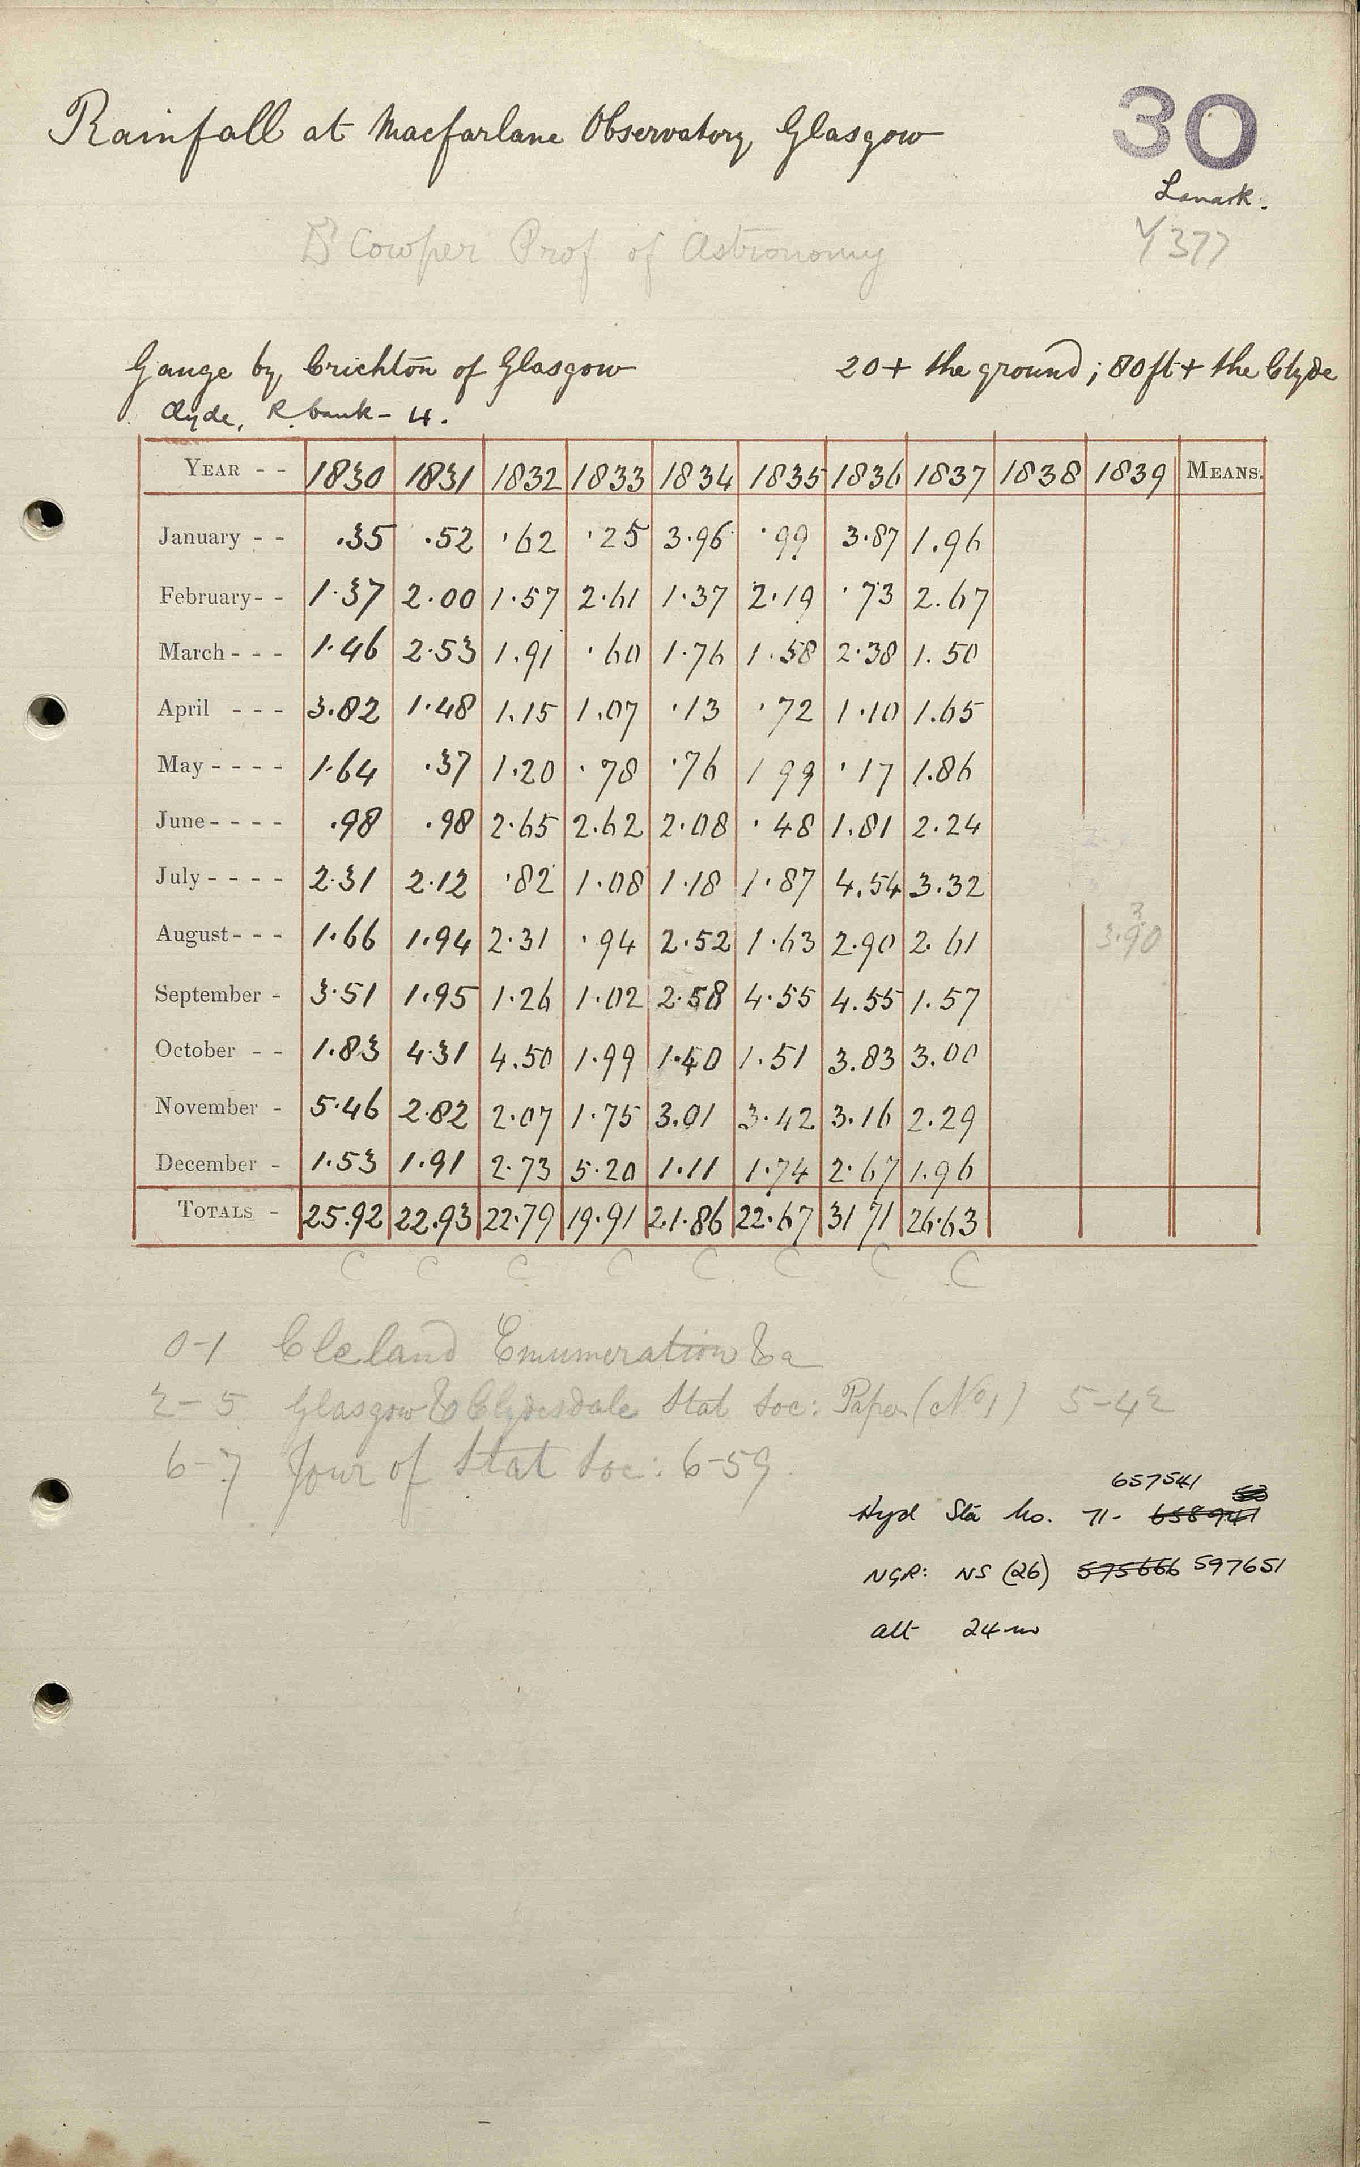 30
Rainfall at Macfarlane Observatory, Glasgow
Lanark.
Dr Cowper Prof of Astronomy
Gauge by Crichton of Glasgow 20+ the ground; 80ft + the Clyde
Clyde, R. bank - 4.
YEAR - - 1830 1831 1832 1833 1834 1835 1836 1837 1838 1839 MEANS.
January - - .35 .52 .62 .25 3.96 .99 3.87 1.96
February - - 1.37 2.00 1.57 2.61 1.37 2.19 .73 2.67
March - - - 1.46 2.53 1.91 .60 1.76 1.58 2.38 1.50
April - - - 3.82 1.48 1.15 1.07 .13 .72 1.10 1.65
May - - - - 1.64 .37 1.20 .78 .76 1 99 .17 1.86
June - - - - .98 .98 2.65 2.62 2.08 .48 1.81 2.24
July - - - - 2.31 2.12 .82 1.08 1.18 1.87 4.54 3.32
August - - - 1.66 1.94 2.31 .94 2.52 1.63 2.90 2.61 3.90
September - 3.51 1.95 1.26 1.02 2.58 4.55 4.55 1.57
October - - 1.83 4.31 4.50 1.99 1.40 1.51 3.83 3.00
November - 5.46 2.82 2.07 1.75 3.01 3.42 3.16 2.29
December - 1.53 1.91 2.73 5.20 1.11 1.74 2.67 1.96
TOTALS - 25.92 22.93 22.79 19.91 21.86 22.67 31 71 26.63
C C C C C C C C
0-1 Cleland Enumeration &a
2-5 Glasgow & Clydesdale Stat Soc: Paper (No 1) 5-42
6-7 Jour of Stat Soc: 6-59.
657541
Hyd Sta No. 71- 658941
NGR: NS (26) 595666 597651
alt 24m